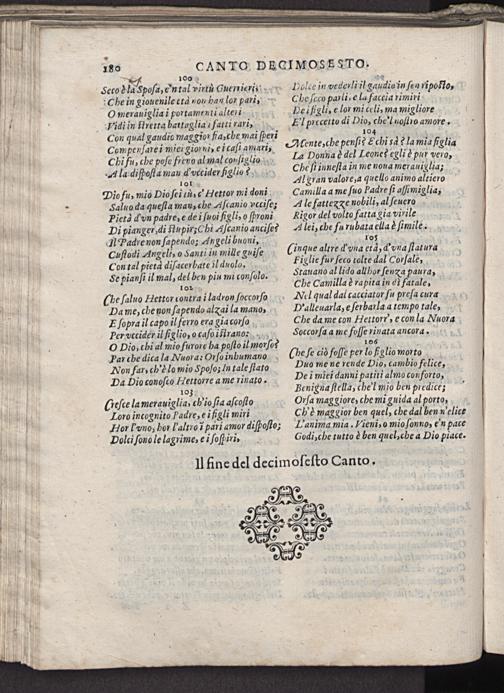 180
CANTO DECIMOSESTO.
100
Seco è la Sposa, e'n tal virtù Guerrieri;
Che in giouenile età non han lor pari,
O merauiglia i portamenti alteri
Vidi in stretta battaglia i fatti rari,
Con qual gaudio maggior fia, che mai speri
Compensare i miei giorni, e i casi amari,
Chi fu, che pose freno al mal consiglio
A la disposta man d'vccider figlio?
101
Dio fu, mio Dio sei tù, c'Hettor mi doni
Saluo da questa man, che Ascanio vccise;
Pietà d'vn padre, e de i suoi figli, o sproni
Di pianger, di stupir; Chì Ascanio ancise?
Il Padre non sapendo; Angeli buoni,
Custodi Angeli, o Santi in mille guise
Con tal pietà disacerbate il duolo,
Se piansi il mal, del ben piu mi consolo.
102
Che saluo Hettor contra i ladron soccorso
Da me, che non sapendo alzai la mano,
E sopra il capo il ferro era già corso
Per vccider il figlio, o caso istrano:
O Dio, chi al mio furore ha posto il morso?
Par che dica la Nuora: Orso inhumano
Non far, ch'è lo mio Sposo; In tale stato
Da Dio conosco Hettorre a me rinato.
103
Cresce la merauiglia, ch'io stia ascosto
Loro incognito Padre, e i figli miri
Hor l'vno, hor l'altro ì pari amor disposto;
Dolci sono le lagrime, e i sospiri,
Dolce in vederli il gaudio in sen riposto,
Che seco parli, e la faccia rimiri
De i figli, e lor miceli, ma migliore
E'l precetto di Dio, che'l nostro amore.
104
Mente, che pensi? E chi sà? la mia figlia
La Donna è del Leone? egli è pur vero,
Che si innesta in me noua merauiglia;
Al gran valore, a quello animo altiero
Camilla a me suo Padre si assimiglia,
A le fattezze nobili, al seuero
Rigor del volto fatta gia virile
A lei, che fu rubata ella è simile.
105
Cinque altre d'vna età, d'vna statura
Figlie fur seco tolte dal Corsale,
Stauano al lido allhor senza paura,
Che Camilla è rapita in dì fatale,
Nel qual dal cacciator fu presa cura
D'alleuarla, e serbarla a tempo tale,
Che da me con Hettorr', e con la Nuora
Soccorsa a me fosse rinata ancora.
106
Che se ciò fosse per lo figlio morto
Duo me ne rende Dio, cambio felice,
De i miei danni patiti almo conforto,
Benigna stella, che'l mio ben predice;
Orsa maggiore, che mi guida al porto,
Ch'è maggior ben quel, che dal ben n'elice
L'anima mia. Vieni, o mio sonno, e'n pace
Godi, che tutto è ben quel, che a Dio piace.
Il fine del decimosesto Canto.